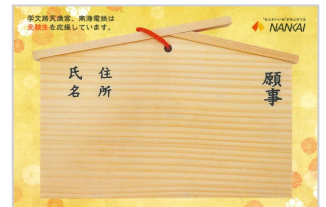 学文路天満宮、南海電鉄は
受験生を応援しています。
NANKAI
願事
住所
氏名